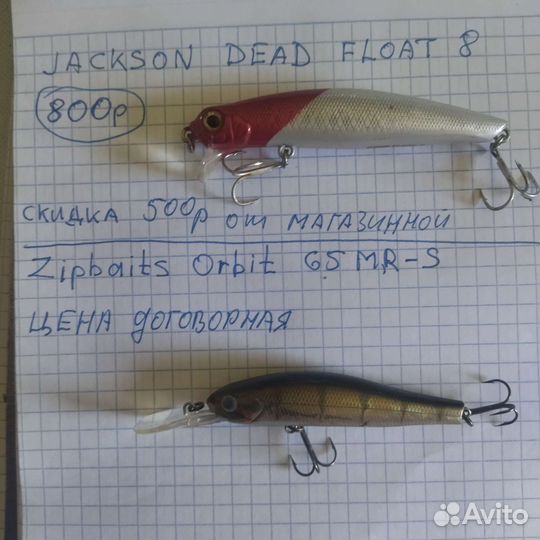 JACKSON DEAD FLOAT 8
800р
СКИДКА 500р от МАГАЗИННОЙ
Zipbaits Orbit 65 MR-S
ЦЕНА ДОГОВОРНАЯ
Avito